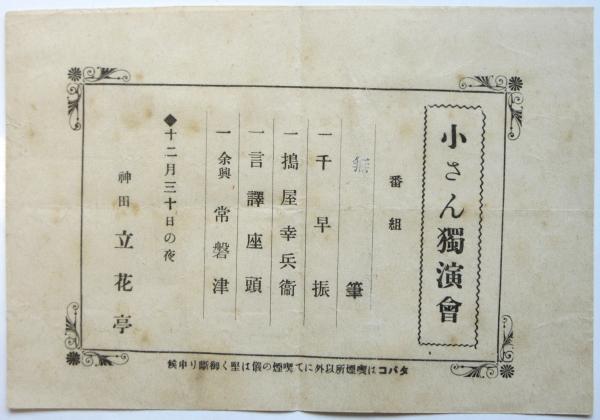 小さん獨演會
番組
無筆
一千早振
一搗屋幸兵衞
一言譯座頭
一余興 常磐津
◆十二月三十日の夜
神田 立花亭
タバコは喫煙所以外にて喫煙の儀は堅く御斷り申候